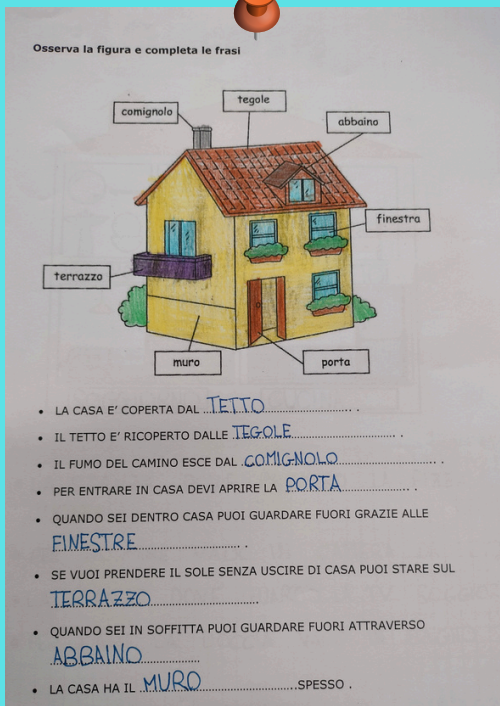 Osserva la figura e completa le frasi
tegole
comignolo
abbaino
finestra
terrazzo
muro
porta
• LA CASA E' COPERTA DAL TETTO .
• IL TETTO E' RICOPERTO DALLE TEGOLE .
• IL FUMO DEL CAMINO ESCE DAL COMIGNOLO .
• PER ENTRARE IN CASA DEVI APRIRE LA PORTA .
• QUANDO SEI DENTRO CASA PUOI GUARDARE FUORI GRAZIE ALLE
FINESTRE .
• SE VUOI PRENDERE IL SOLE SENZA USCIRE DI CASA PUOI STARE SUL
TERRAZZO
• QUANDO SEI IN SOFFITTA PUOI GUARDARE FUORI ATTRAVERSO
ABBAINO
• LA CASA HA IL MURO SPESSO .